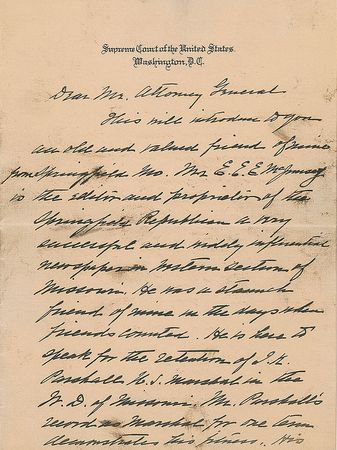 Supreme Court of the United States.
Washington, D.C.
Dear Mr. Attorney General
This will introduce to you
an old and valued friend of mine
from Springfield Mo. Mr E. E. E. McJimsey
is the editor and proprietor of the
Springfield Republican a very
successful and widely influential
newspaper in western section of
Missouri. He was a staunch
friend of mine in the days when
friends counted. He is here to
speak for the retention of J. K.
Parshall U. S. Marshal in the
W. D. of Missouri. Mr. Parshall's
record as Marshal for one term
demonstrates his fitness. His